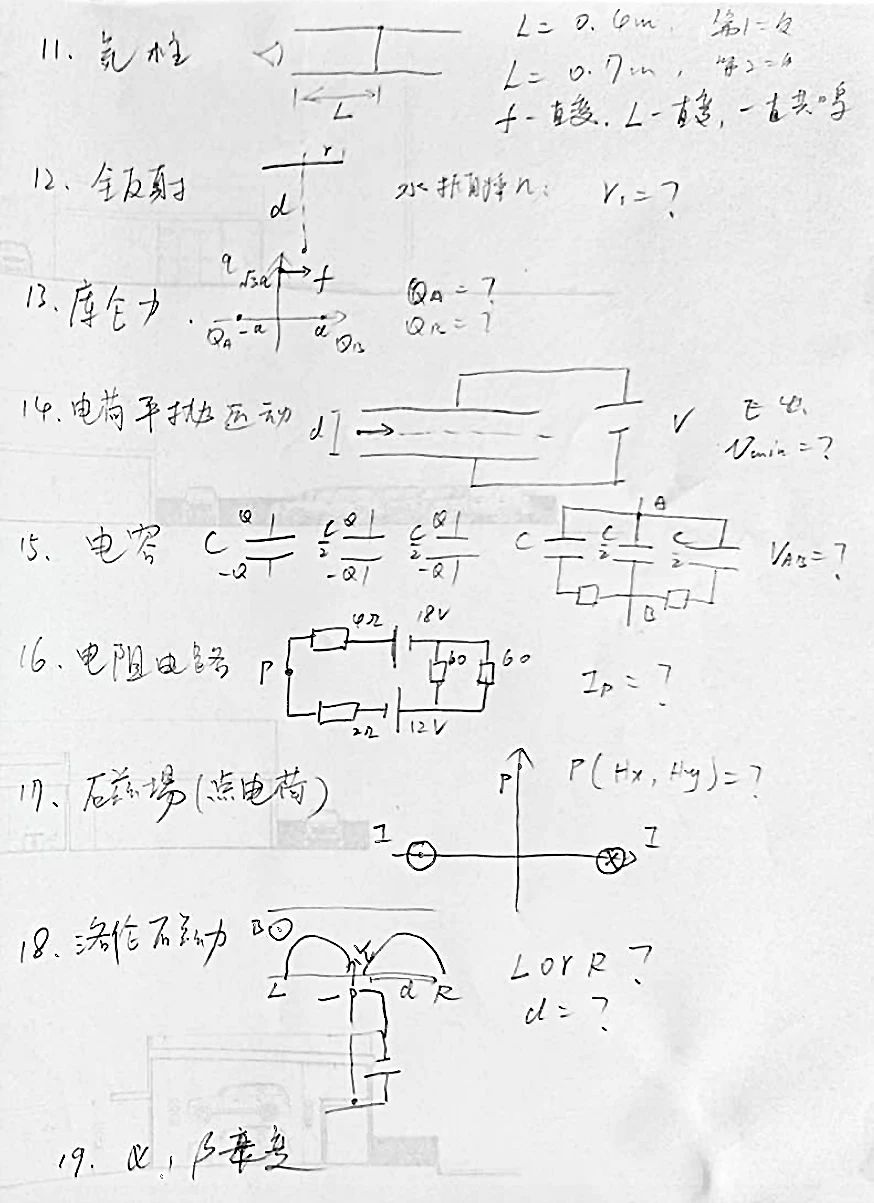 11. 气柱 L L = 0.6m, 第1=
L = 0.7m, 第2=
f一直变. L一直变, 一直共鸣
12. 全反射 r d 水折射率n: r₁=?
13. 库仑力. q √3a f -a a QA QB QA = ?
QB = ?
14. 电荷平抛运动 d V
Vmin = ?
15. 电容 C Q -Q C/2 Q -Q C/2 Q -Q C C/2 C/2 A B VAB = ?
16. 电阻电路 P 4Ω 18V 6Ω 6Ω 2Ω 12V Ip = ?
17. 磁場(点电荷) I I P P(Hx, Hy) = ?
18. 洛伦磁力 B L P d R L or R ?
d = ?
19. α, β衰变